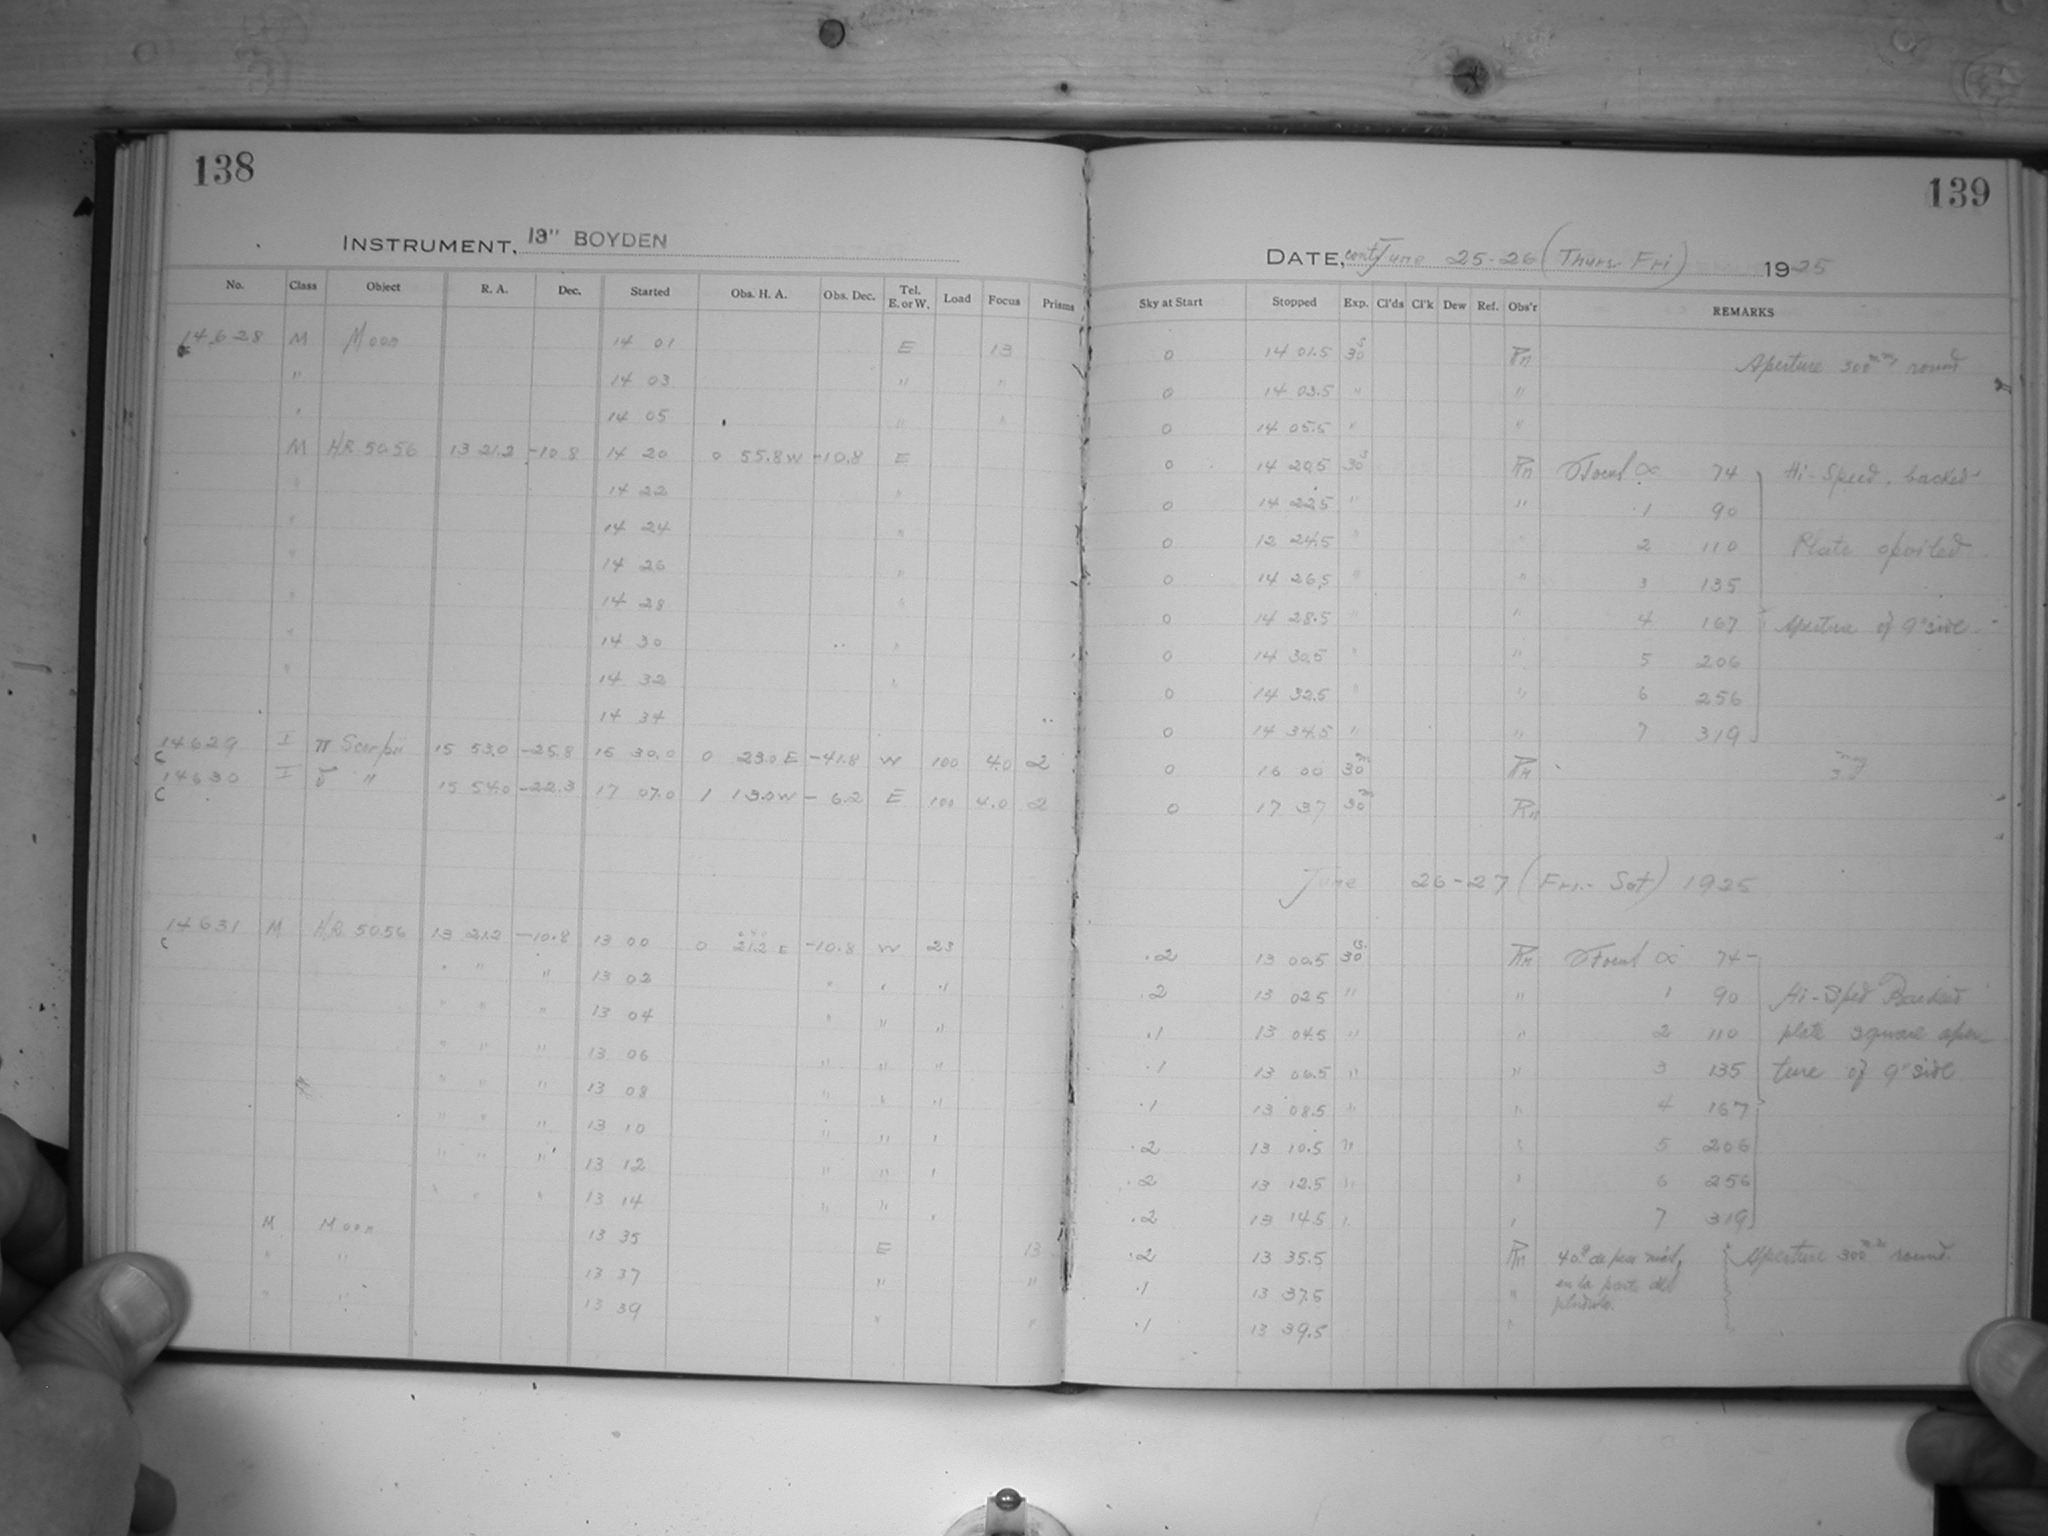 138
INSTRUMENT, 13" BOYDEN
No. Class Object R. A. Dec. Started Obs. H. A. Obs. Dec. Tel. E. or W. Load Focus Prisms
14628 M Moon 14 01 E 13
" 14 03 " "
" 14 05 " "
M H.R. 5056 13 21.2 -10.8 14 20 0 55.8 W -10.8 E
" 14 22 "
" 14 24 "
" 14 26 "
" 14 28 "
" 14 30 "
" 14 32 "
14 34
14629 I π Scorpii 15 53.0 -25.8 15 30.0 0 23.0 E -41.8 W 100 4.0 2
C
14630 I δ " 15 54.0 -22.3 17 07.0 1 13.0 W - 6.2 E 100 4.0 2
C
14631 M H.R. 5056 13 21.2 -10.8 13 00 0 21.2 E -10.8 W 23
C
" " " 13 02 " " "
" " " 13 04 " " "
" " " 13 06 " " "
" " " 13 08 " " "
" " " 13 10 " " "
" " " 13 12 " " "
" " " 13 14 " " "
M Moon 13 35 E 13
" " 13 37 " "
" " 13 39 " "
139
DATE, cont June 25-26 (Thurs. Fri) 1925
Sky at Start Stopped Exp. Cl'ds Cl'k Dew Ref. Obs'r REMARKS
0 14 01.5 30s Rn Aperture 300mm round
0 14 03.5 " "
0 14 05.5 " "
0 14 20.5 30s Rn Focul ∝ 74 Hi-Speed. backed
0 14 22.5 " " 1 90
0 12 24.5 " " 2 110 Plate spoiled
0 14 26.5 " " 3 135
0 14 28.5 " " 4 167 Aperture of 9" side
0 14 30.5 " " 5 206
0 14 32.5 " " 6 256
0 14 34.5 " " 7 319
0 16 00 30m Rn
0 17 37 30m Rn
June 26-27 (Fri.- Sat) 1925
.2 13 00.5 30s Rn Focul ∝ 74
.2 13 02.5 " " 1 90 Hi-Sped Backed
.1 13 04.5 " " 2 110 plate square aper-
.1 13 06.5 " " 3 135 ture of 9" side
.1 13 08.5 " " 4 167
.2 13 10.5 " " 5 206
.2 13 12.5 " " 6 256
.2 13 14.5 " " 7 319
.2 13 35.5 Rn Aperture 300mm round.
.1 13 37.5 " en la parte del
.1 13 39.5 "